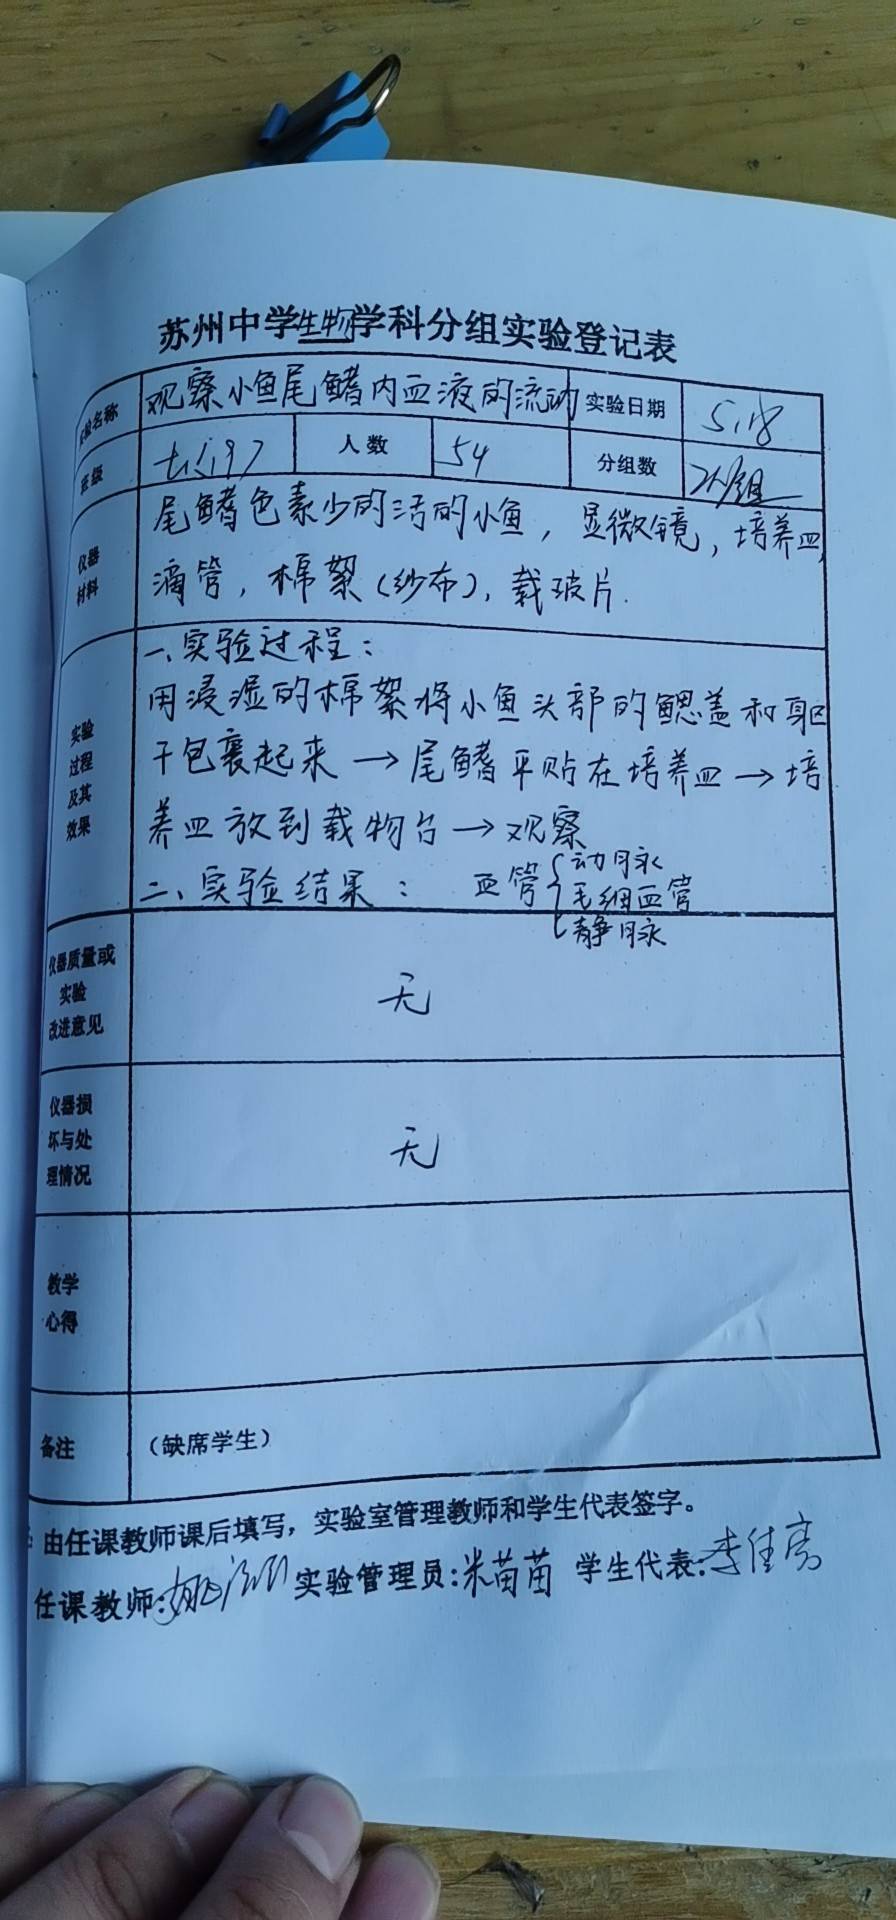 苏州中学生物学科分组实验登记表
实验名称 观察小鱼尾鳍内血液的流动 实验日期 5.18
班级 七(19) 人数 54 分组数
仪器材料 尾鳍色素少的活的小鱼，显微镜，培养皿，
滴管，棉絮（纱布），载玻片.
实验过程及其效果
一、实验过程：
用浸湿的棉絮将小鱼头部的鳃盖和躯
干包裹起来→尾鳍平贴在培养皿→培
养皿放到载物台→观察
二、实验结果： 血管{动脉
毛细血管
静脉
仪器质量或实验改进意见 无
仪器损坏与处理情况 无
教学心得
备注 （缺席学生）
由任课教师课后填写，实验室管理教师和学生代表签字。
任课教师: 实验管理员:米苗苗 学生代表:李佳亮